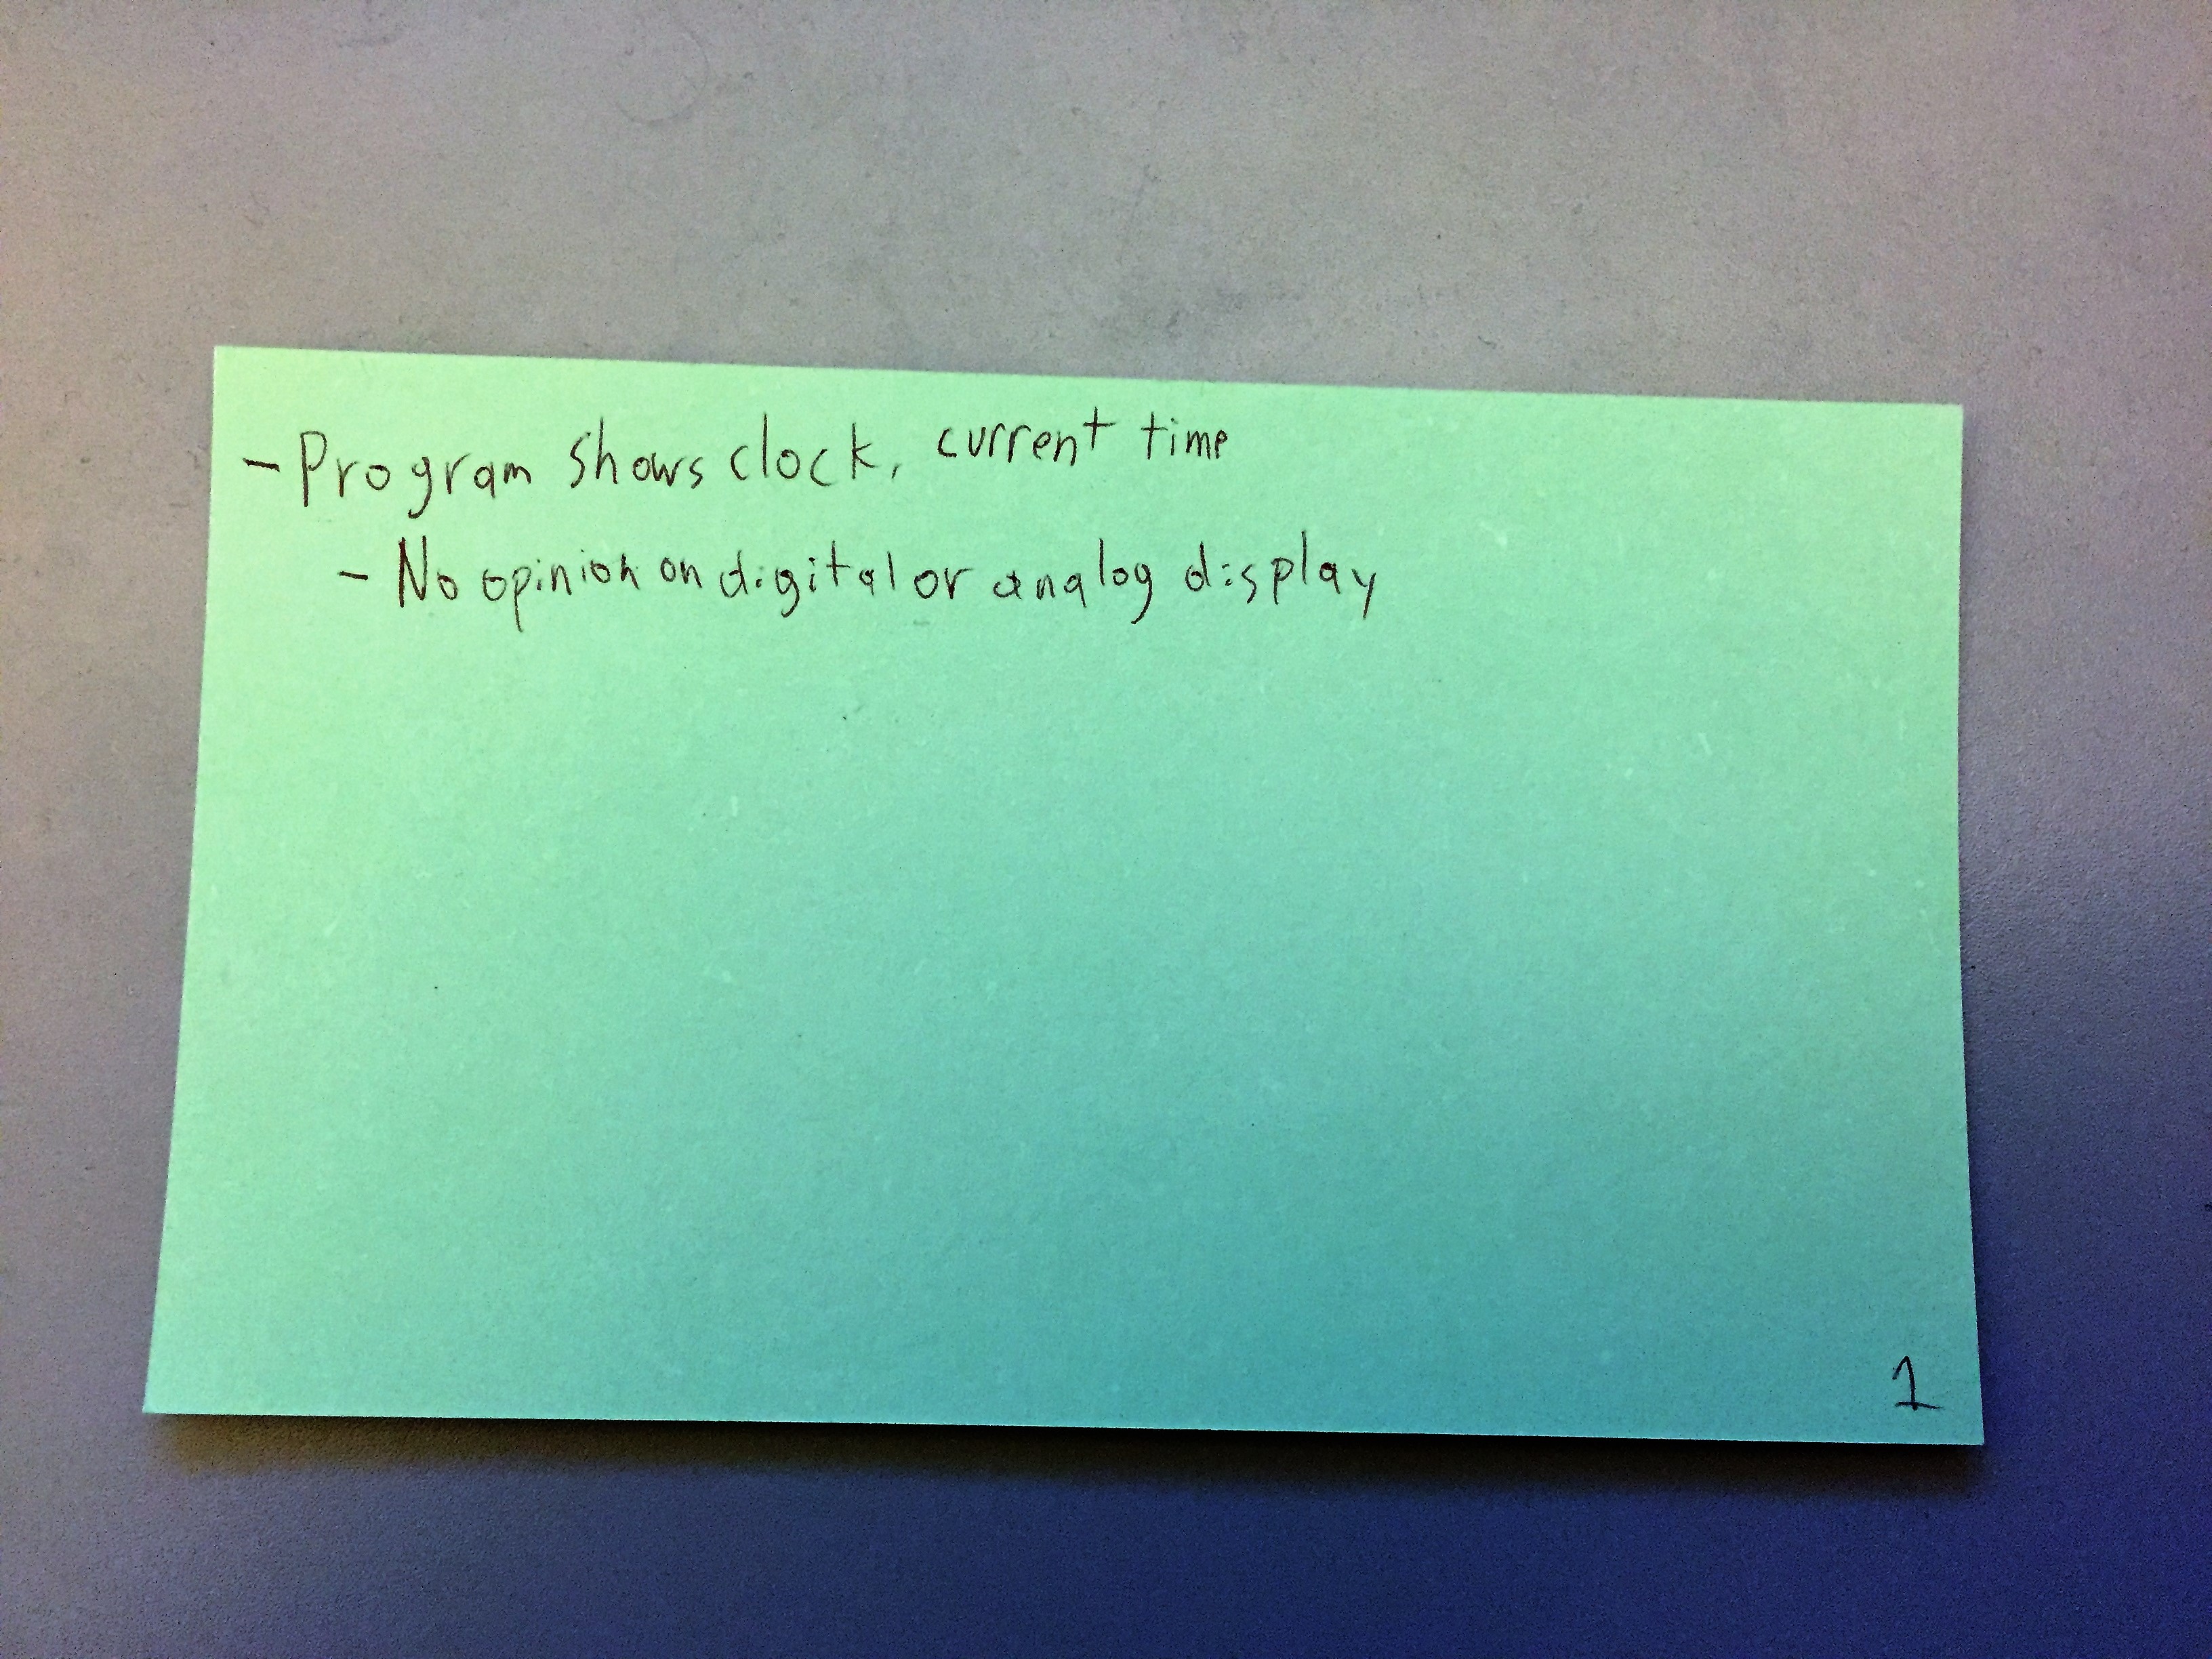 - Program shows clock, current time
- No opinion on digital or analog display
1